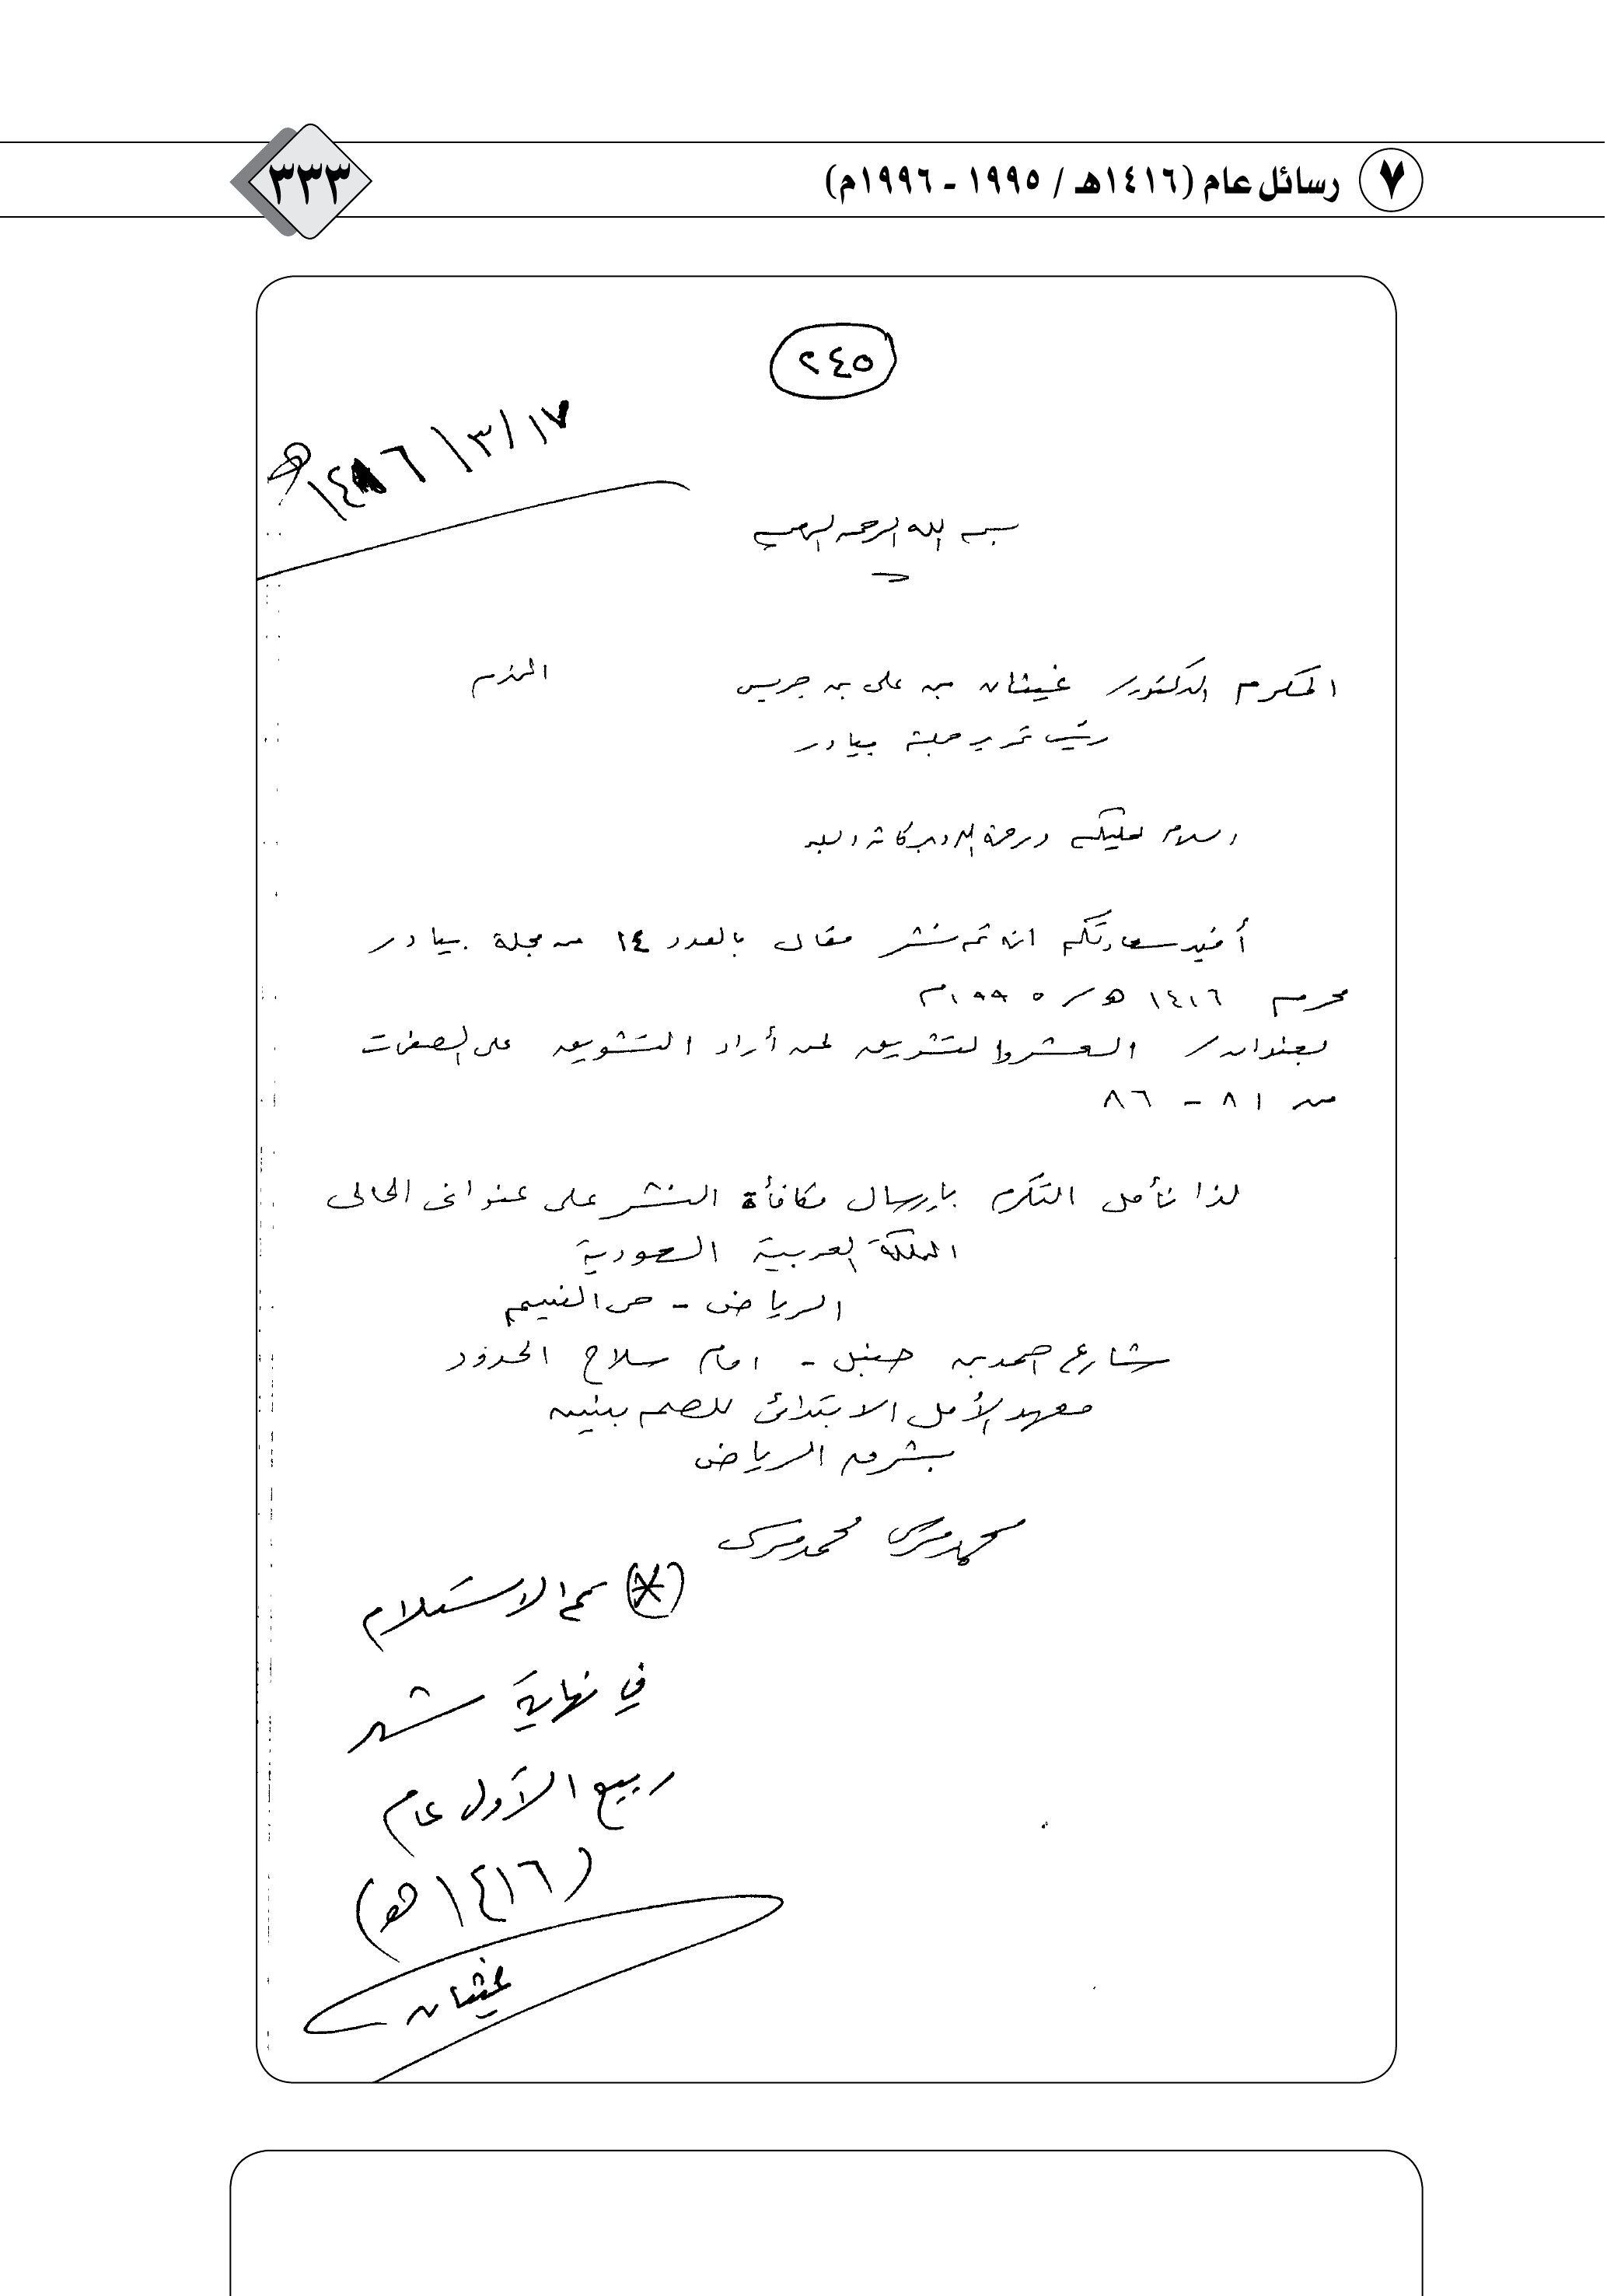 ٧ رسائل عام (١٤١٦هـ / ١٩٩٥ - ١٩٩٦م)
٣٣٣
٢٤٥
١٧/٣/١٤١٦هـ
بسم الله الرحمن الرحيم
المكرم الدكتور/ غيثان بن علي بن جريس المحترم
رئيس تحرير مجلة بيادر
السلام عليكم ورحمة الله وبركاته وبعد
أفيد سعادتكم انه تم نشر مقال بالعدد ١٤ من مجلة بيادر
محرم ١٤١٦ هـ/ ١٩٩٥م
بعنوان/ التشريق لمن أراد التشويق على الصفحات
من ٨١ - ٨٦
لذا نأمل التكرم بإرسال مكافأة النشر على عنوانى الحالى
المملكة العربية السعودية
الرياض - حى النسيم
شارع احمد بن حنبل - امام سلاح الحدود
معهد الأمل الابتدائى للصم بنين
بشرق الرياض
محمد مرسى محمد مرسى
(*) تم الاستلام
في نهاية شهر
ربيع الأول عام
(١٤١٦هـ)
غيثان